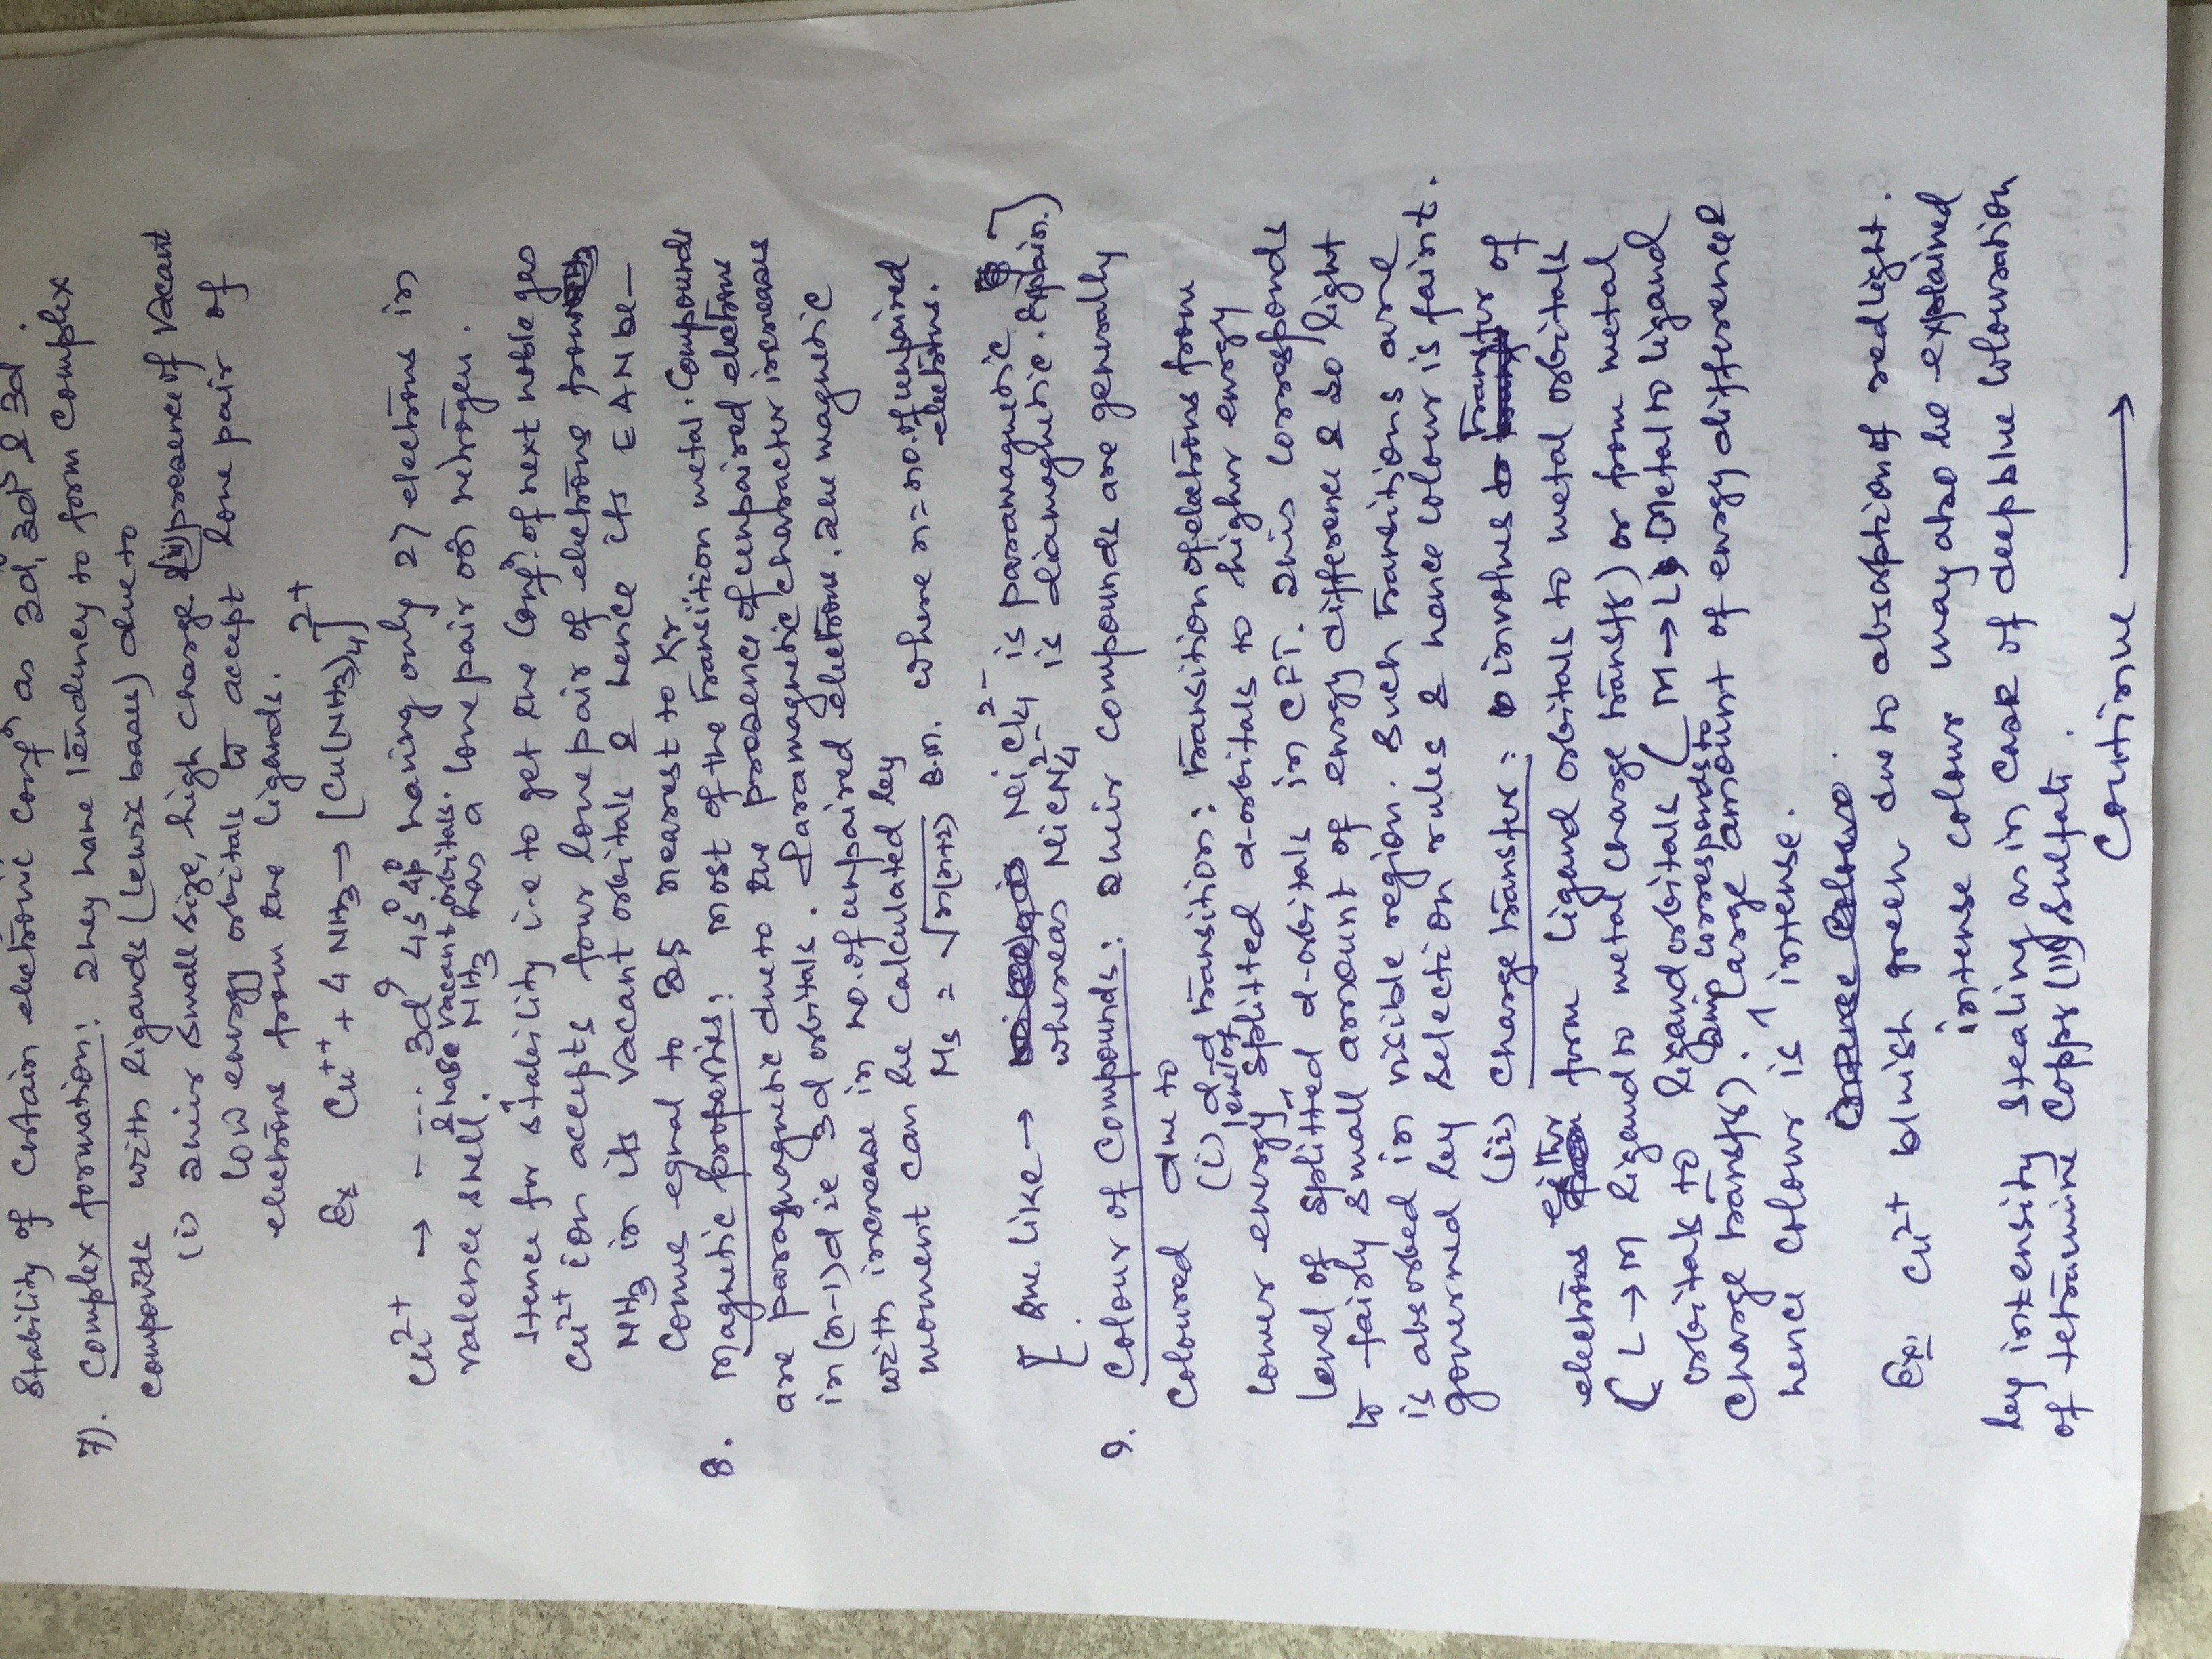 Stability of certain electronic confⁿ as 3d⁰, 3d⁵ & 3d
7). Complex formation: They have tendency to form complex
compounds with ligands (Lewis bases) due to
(i) Their small size, high charge & (ii) presence of vacant
low energy orbitals to accept lone pair of
electrons from the ligands.
Ex Cu⁺⁺ + 4 NH₃ → [Cu(NH₃)₄]²⁺
Cu²⁺ → - - ... 3d⁹ 4s⁰ 4p⁰ having only 27 electrons in
valence shell. & have vacant orbitals.
NH₃ has a lone pair on nitrogen.
Hence for stability i.e to get the confⁿ. of next noble gas
Cu²⁺ ion accepts four lone pair of electrons from
NH₃ in its vacant orbitals & hence its EAN be-
come equal to 35 nearest to Kr
8. Magnetic properties: Most of the transition metal. Compounds
are paramagnetic due to the presence of unpaired electrons
in (n-1)d ie 3d orbitals. Paramagnetic character increases
with increase in no. of unpaired electrons. The magnetic
moment can be calculated by
Ms = √n(n+2) B.M. where n = no. of unpaired
electrons.
[ Que. like → NiCl₄²⁻ is paramagnetic
whereas NiCN₄²⁻ is diamagnetic. Explain.) ]
9. Colour of Compounds: Their compounds are generally
coloured due to
(i) d-d transition: transition of electrons from
lower energy level of splitted d-orbitals to higher energy
level of splitted d-orbitals in CFT. This corresponds
to fairly small amount of energy difference & so light
is absorbed in visible region. Such transitions are
governed by selection rules & hence colour is faint.
(ii) Charge transfer: involves transfer of
electrons either form ligand orbitals to metal orbitals
( L → M ligand to metal charge transfer) or from metal
orbitals to ligand orbitals ( M → L, Metal to ligand
charge transfer). This corresponds to large amount of energy difference &
hence colour is intense.
Ex. Cu²⁺ bluish green due to absorption of red light.
intense colour may also be explained
by intensity stealing as in case of deep blue colouration
of tetrammine Copper (II) sulfate.
Continue →